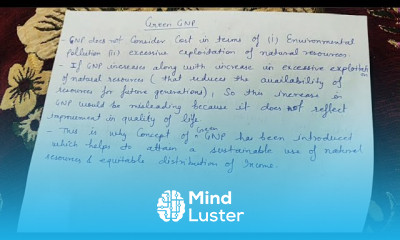 Green GNP.
- GNP does not Consider Cost in terms of (i) Environmental
pollution (ii) excessive exploitation of natural resources.
- If GNP increases along with increase in excessive exploitation
of natural resources (that reduces the availability of
resources for future generations), So this increase in
GNP would be misleading because it does not reflect
improvement in quality of life.
- This is why Concept of "Green GNP has been introduced
which helps to attain a sustainable use of natural
resources & equitable distribution of Income.
Mind
Luster